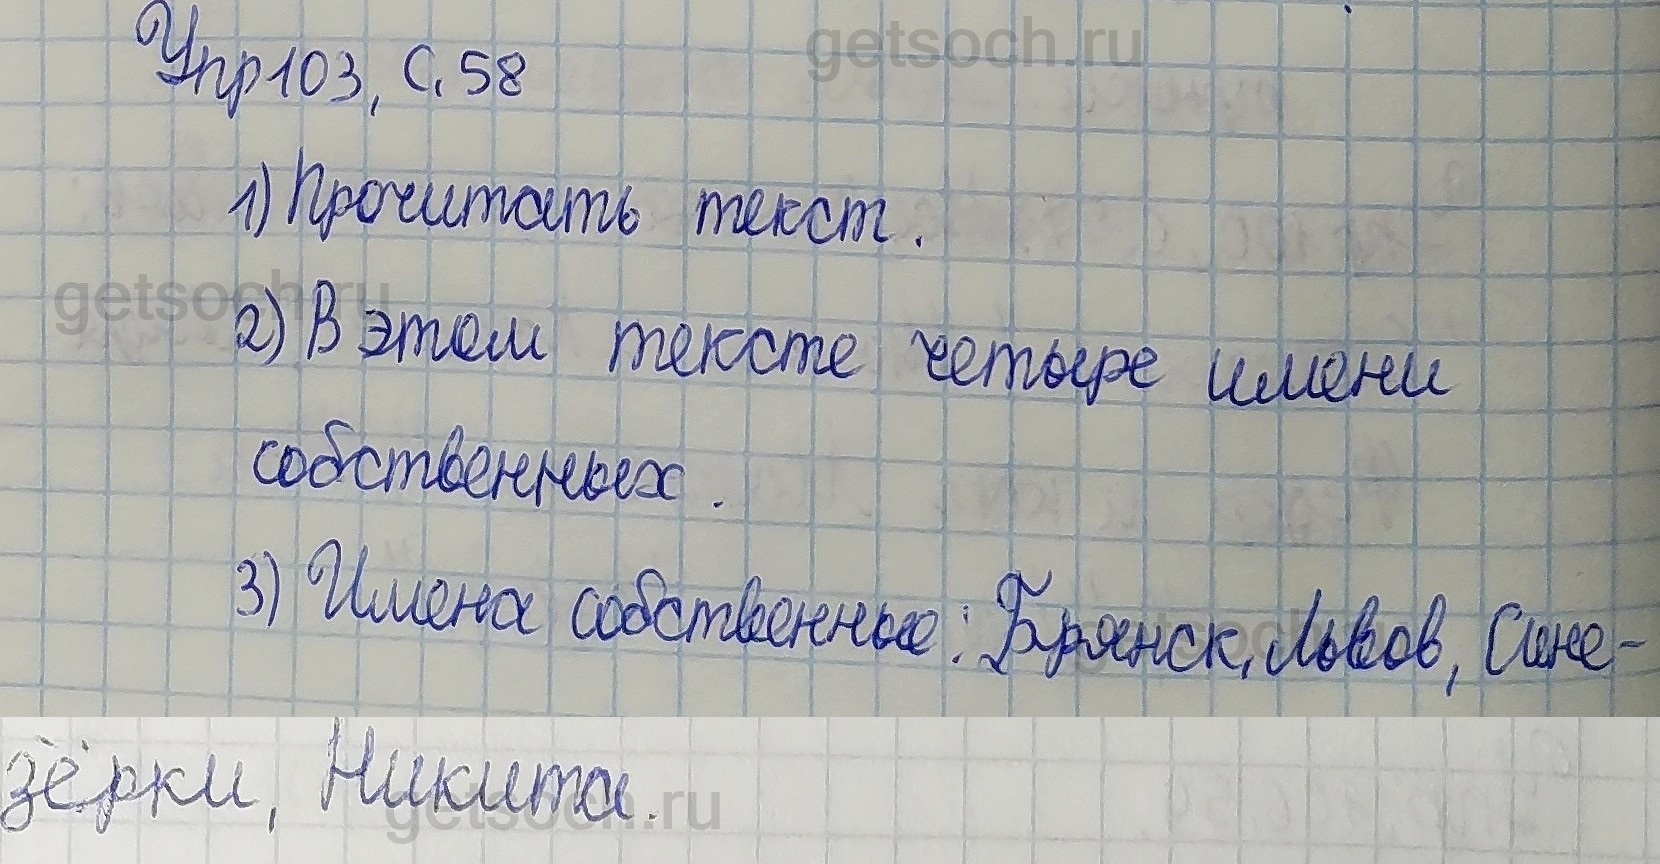 getsoch.ru
Упр103, С. 58
1) Прочитать текст.
getsoch.ru
2) В этом тексте четыре имени
собственных.
3) Имена собственные: Брянск, Львов, Сине-
getsoch.ru
зёрки, Никита.
getsoch.ru